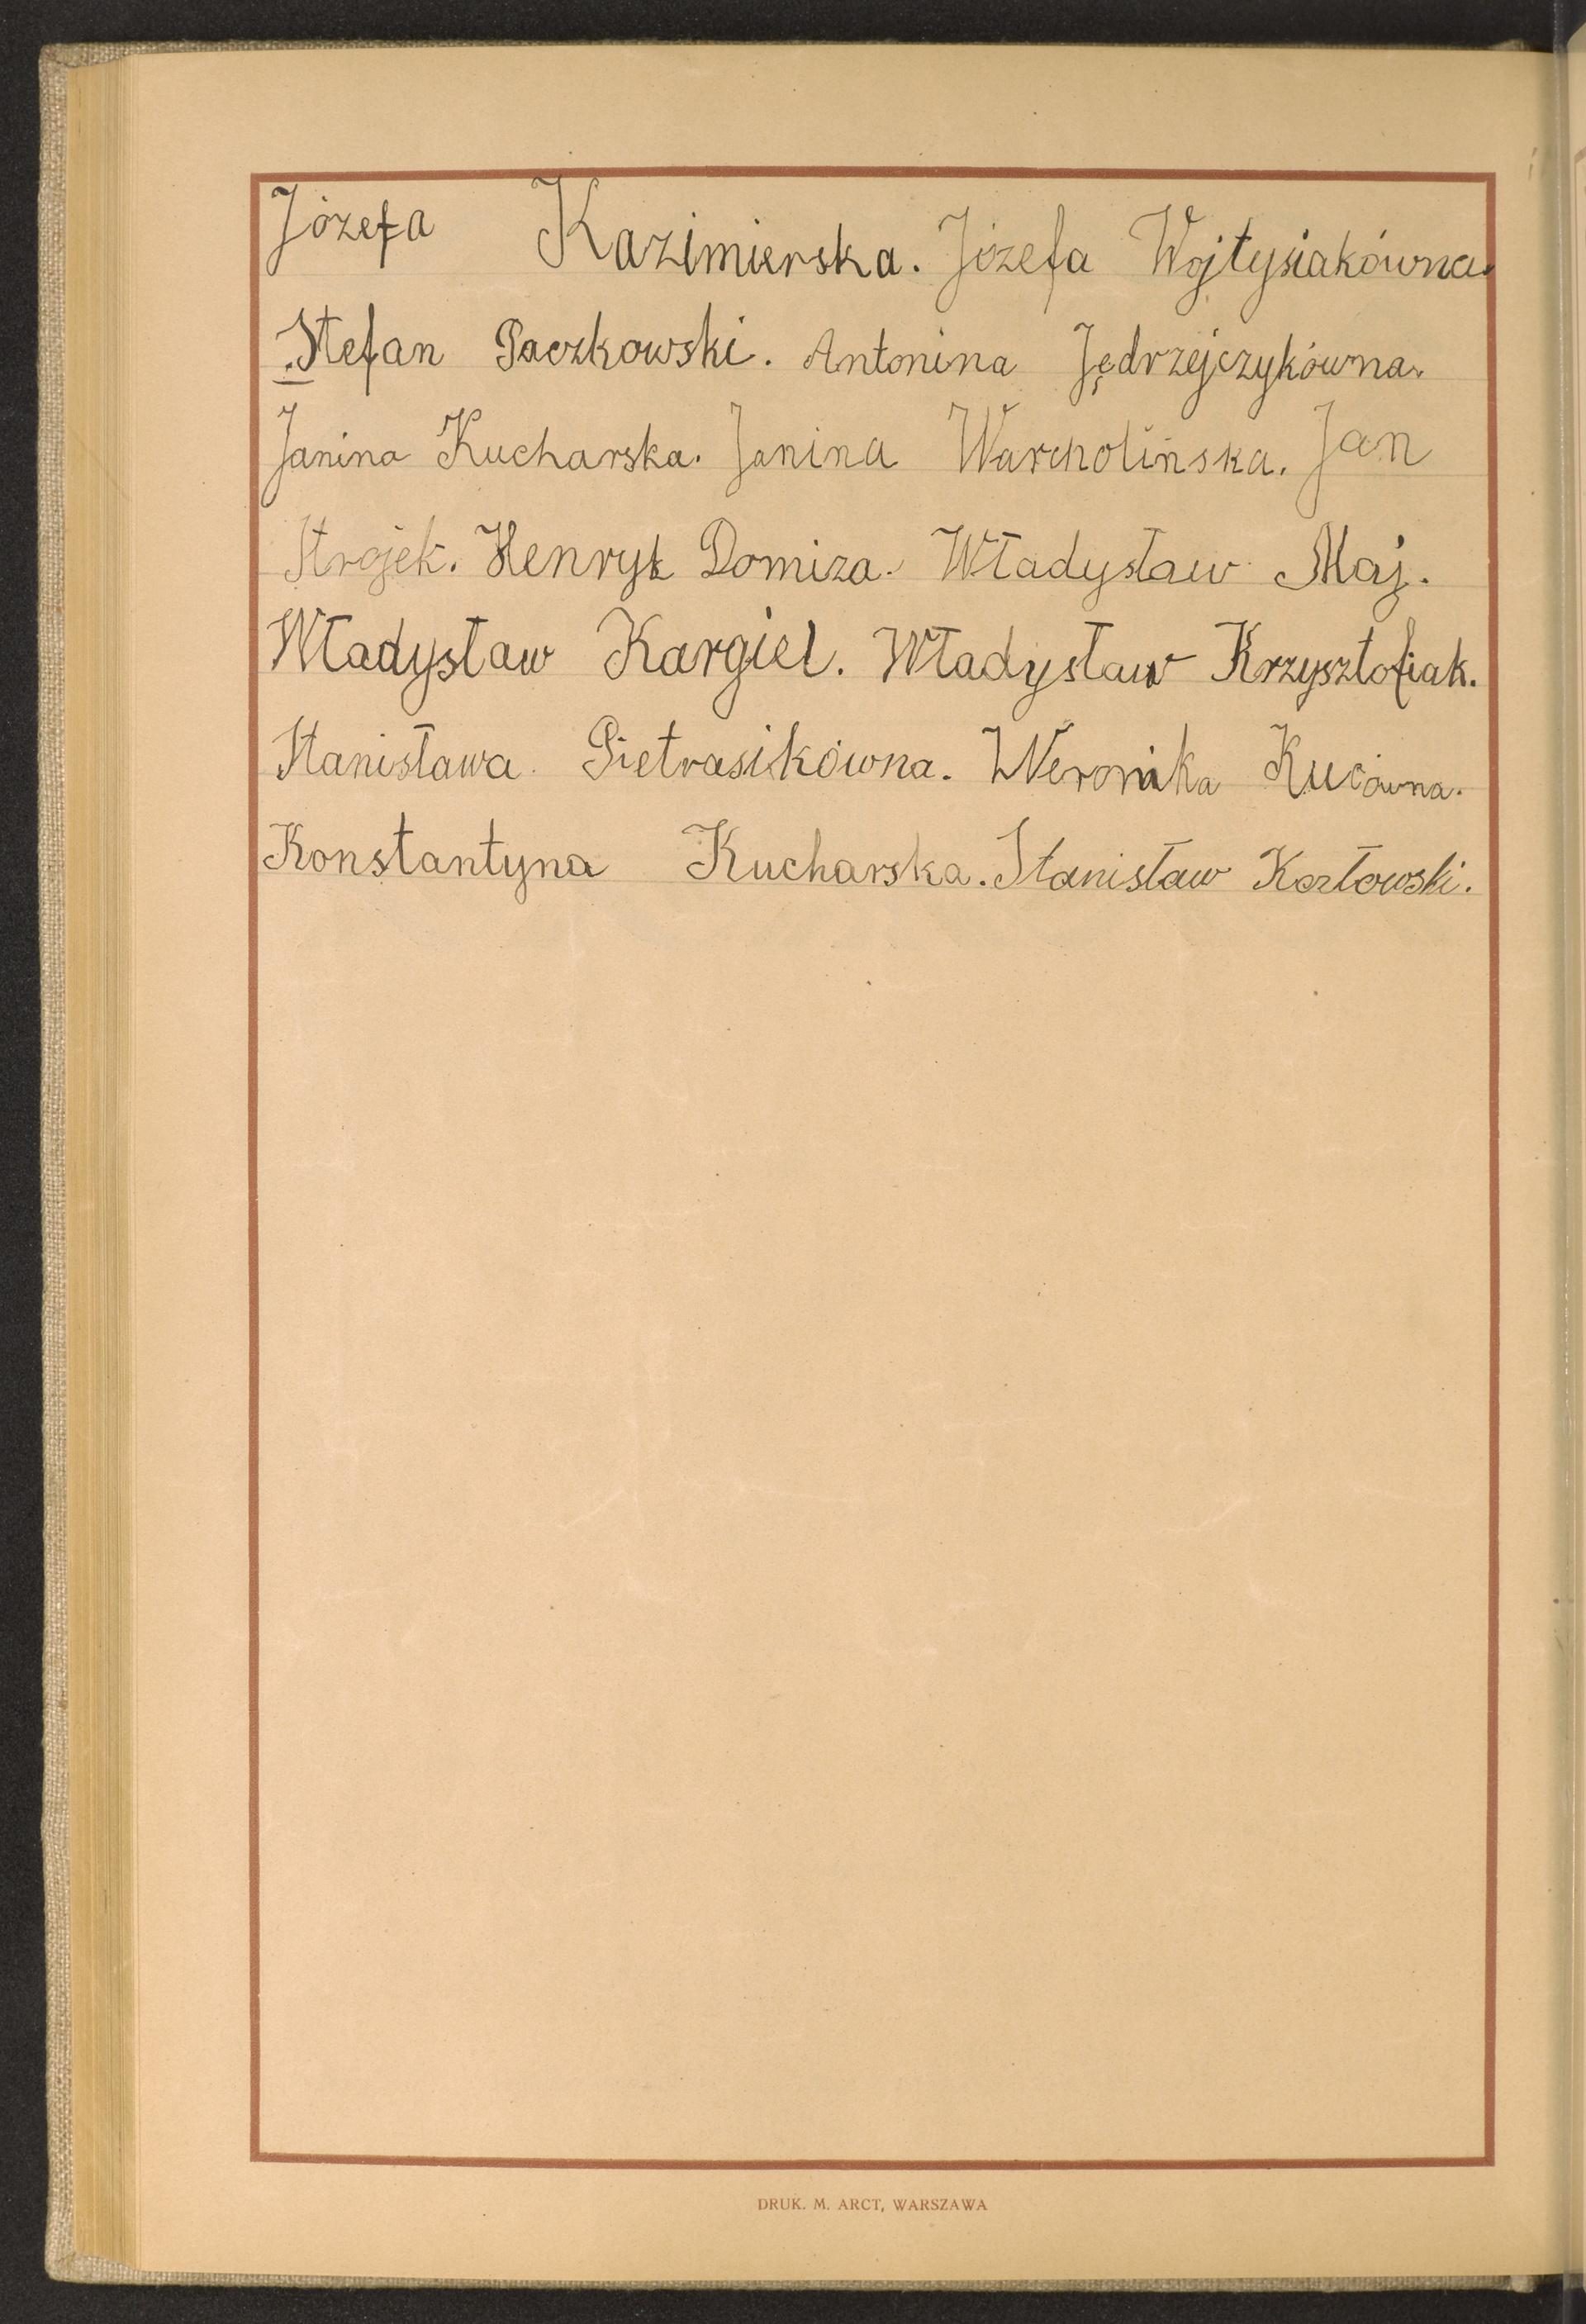 Józefa Kazimierska. Józefa Wojtysiakówna.
Stefan Paczkowski. Antonina Jędrzejczykówna.
Janina Kucharska. Janina Warcholińska. Jan
Strojek. Henryk Domiza. Władysław Maj.
Władysław Kargiel. Władysław Krzysztofiak.
Stanisława Pietrasikówna. Weronika Kucówna.
Konstantyna Kucharska. Stanisław Kozłowski.
DRUK. M. ARCT, WARSZAWA